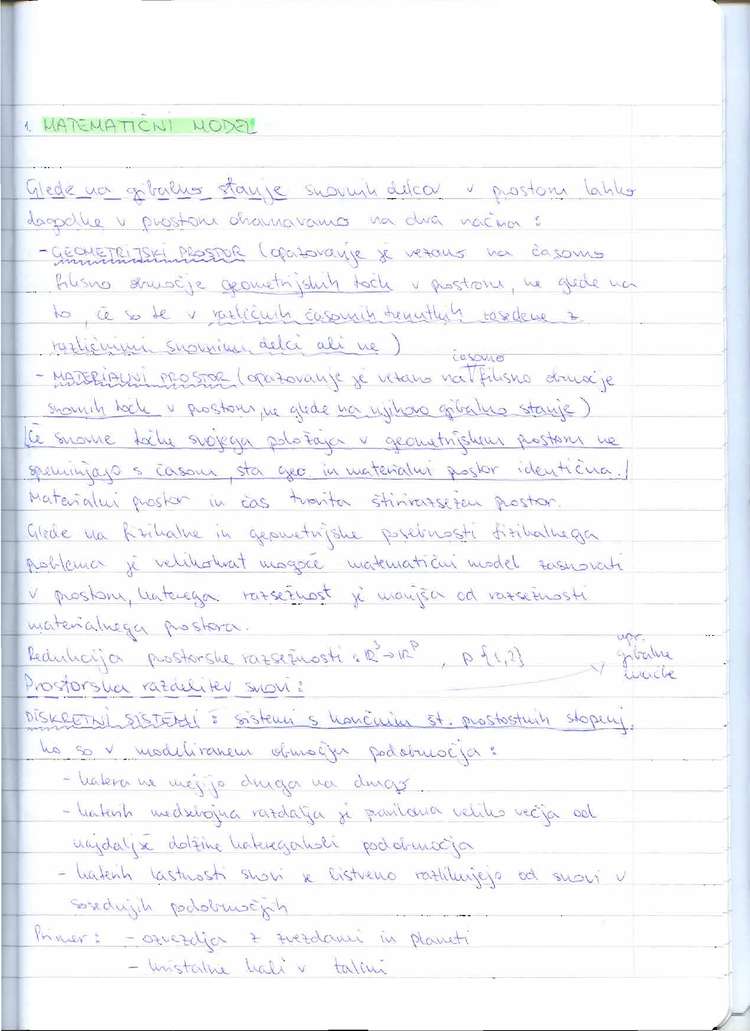 1. MATEMATIČNI MODEL
Glede na gibalno stanje snovnih delcev v prostoru lahko
dogodke v prostoru obravnavamo na dva načina :
- GEOMETRIJSKI PROSTOR (opazovanje je vezano na časovno
fiksno območje geometrijskih točk v prostoru, ne glede na
to, če so te v različnih časovnih trenutkih zasedene z
različnimi snovnimi delci ali ne)
časovno
- MATERIALNI PROSTOR (opazovanje je vezano na fiksno območje
snovnih točk v prostoru, ne glede na njihovo gibalno stanje)
(Če snovne točke svojega položaja v geometrijskem prostoru ne
spreminjajo s časom, sta geo. in materialni prostor identična.)
Materialni prostor in čas tvorita štirirazsežen prostor.
Glede na fizikalne in geometrijske posebnosti fizikalnega
problema je velikokrat mogoče matematični model zasnovati
v prostoru, katerega razsežnost je manjša od razsežnosti
materialnega prostora.
Redukcija prostorske razsežnosti : R³→Rᵖ , p {1,2}
npr.
gibalne
enačbe
Prostorska razdelitev snovi :
DISKRETNI SISTEMI : sistemi s končnim št. prostostnih stopenj.
ko so v modeliranem območju podobmočja :
- katera ne mejijo druga na drugo
- katerih medsebojna razdalja je praviloma veliko večja od
najdaljše dolžine kateregakoli podobmočja
- katerih lastnosti snovi se bistveno razlikujejo od snovi v
sosednjih podobmočjih
Primer : - ozvezdja z zvezdami in planeti
- kristalne kali v talini